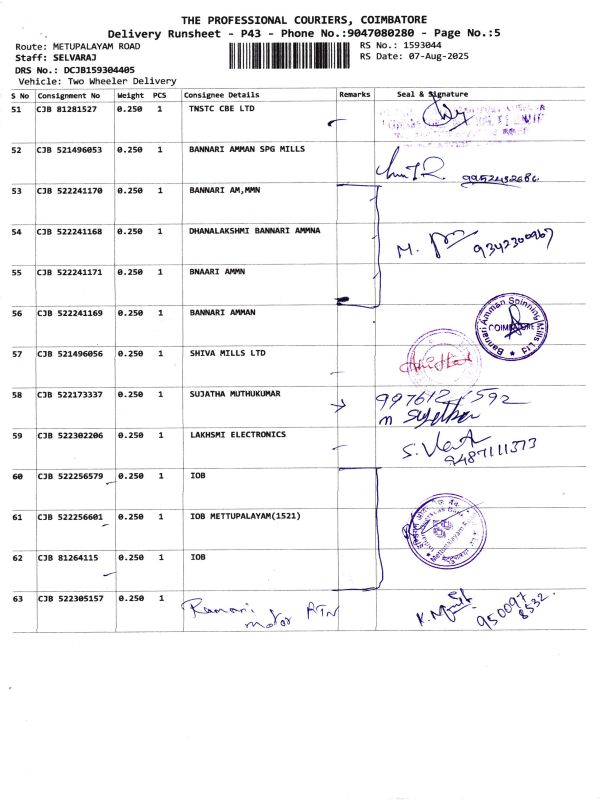 THE PROFESSIONAL COURIERS, COIMBATORE
Delivery Runsheet - P43 - Phone No.:9047080280 - Page No.:5
Route: METUPALAYAM ROAD
RS No.: 1593044
Staff: SELVARAJ
RS Date: 07-Aug-2025
DRS No.: DCJB159304405
Vehicle: Two Wheeler Delivery
S No Consignment No Weight PCS Consignee Details Remarks Seal & Signature
51 CJB 81281527 0.250 1 TNSTC CBE LTD
52 CJB 521496053 0.250 1 BANNARI AMMAN SPG MILLS
53 CJB 522241170 0.250 1 BANNARI AM,MMN
54 CJB 522241168 0.250 1 DHANALAKSHMI BANNARI AMMNA
9342300967
55 CJB 522241171 0.250 1 BNAARI AMMN
56 CJB 522241169 0.250 1 BANNARI AMMAN
Bannari Amman Spinning Mills Ltd
COIMBATORE
57 CJB 521496056 0.250 1 SHIVA MILLS LTD
58 CJB 522173337 0.250 1 SUJATHA MUTHUKUMAR
59 CJB 522302206 0.250 1 LAKHSMI ELECTRONICS
9487111373
60 CJB 522256579 0.250 1 IOB
61 CJB 522256601 0.250 1 IOB METTUPALAYAM(1521)
62 CJB 81264115 0.250 1 IOB
63 CJB 522305157 0.250 1 Ramani motor
950097
8532